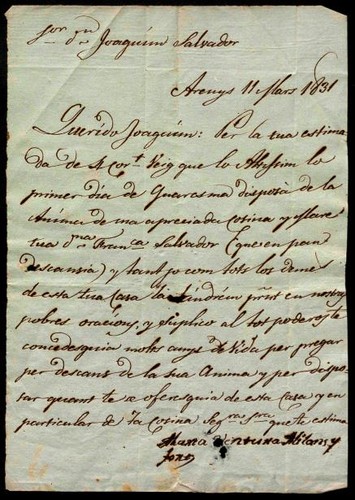 Sor. Dn. Joaquim Salvador
Arenys 11 Mars 1831
Querido Joaquim: Per la tua estima
da de 4 cort. veig que lo Altissim lo
primer dia de Quaresma disposà de la
Anima de ma apreciada Cosina y Mare
tua Da. Franca. Salvador (que en pau
descansia) y tant jo com tots los demes
de esta tua Casa la tindrem pnt. en nostras
pobres oracions, y suplico al totpoderos te
concedesquia molts anys de vida per pregar
per descans de la sua Anima y per dispo
sar quant te a oferesquia de esta Casa y en
particular de ta Cosina Segras. Sra. que te estima
Maria Ventura Milans y